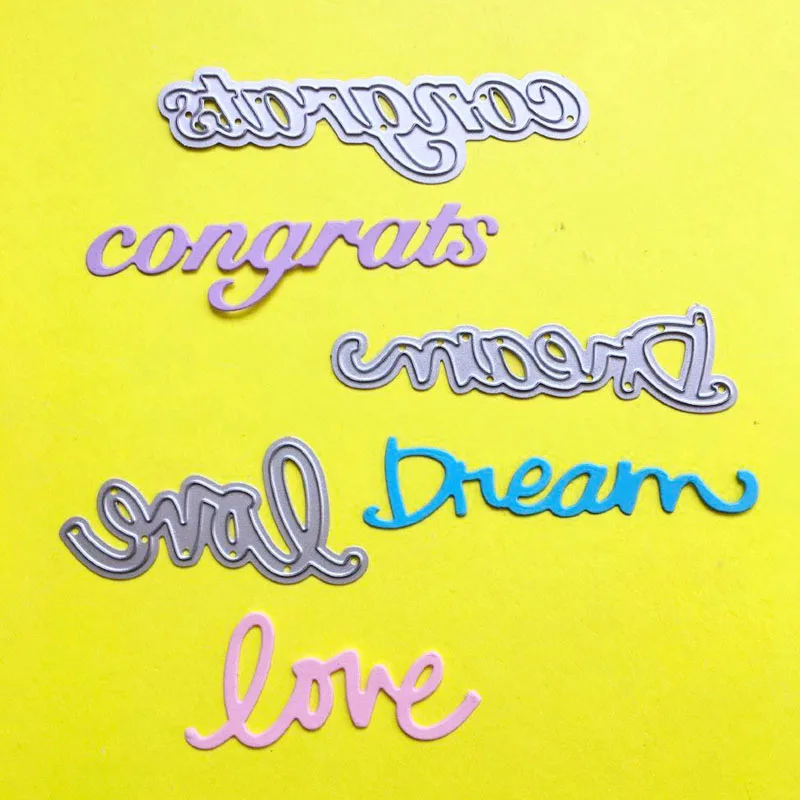 congrats
congrats
Dream
Dream
love
love